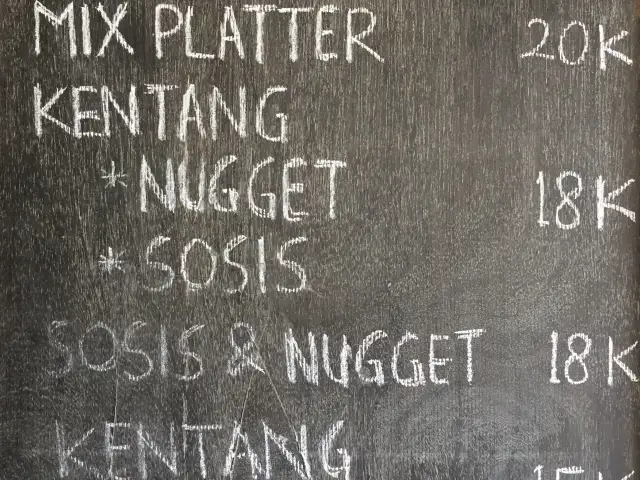 MIX PLATTER 20K
KENTANG
* NUGGET 18K
* SOSIS
SOSIS & NUGGET 18K
KENTANG 15K